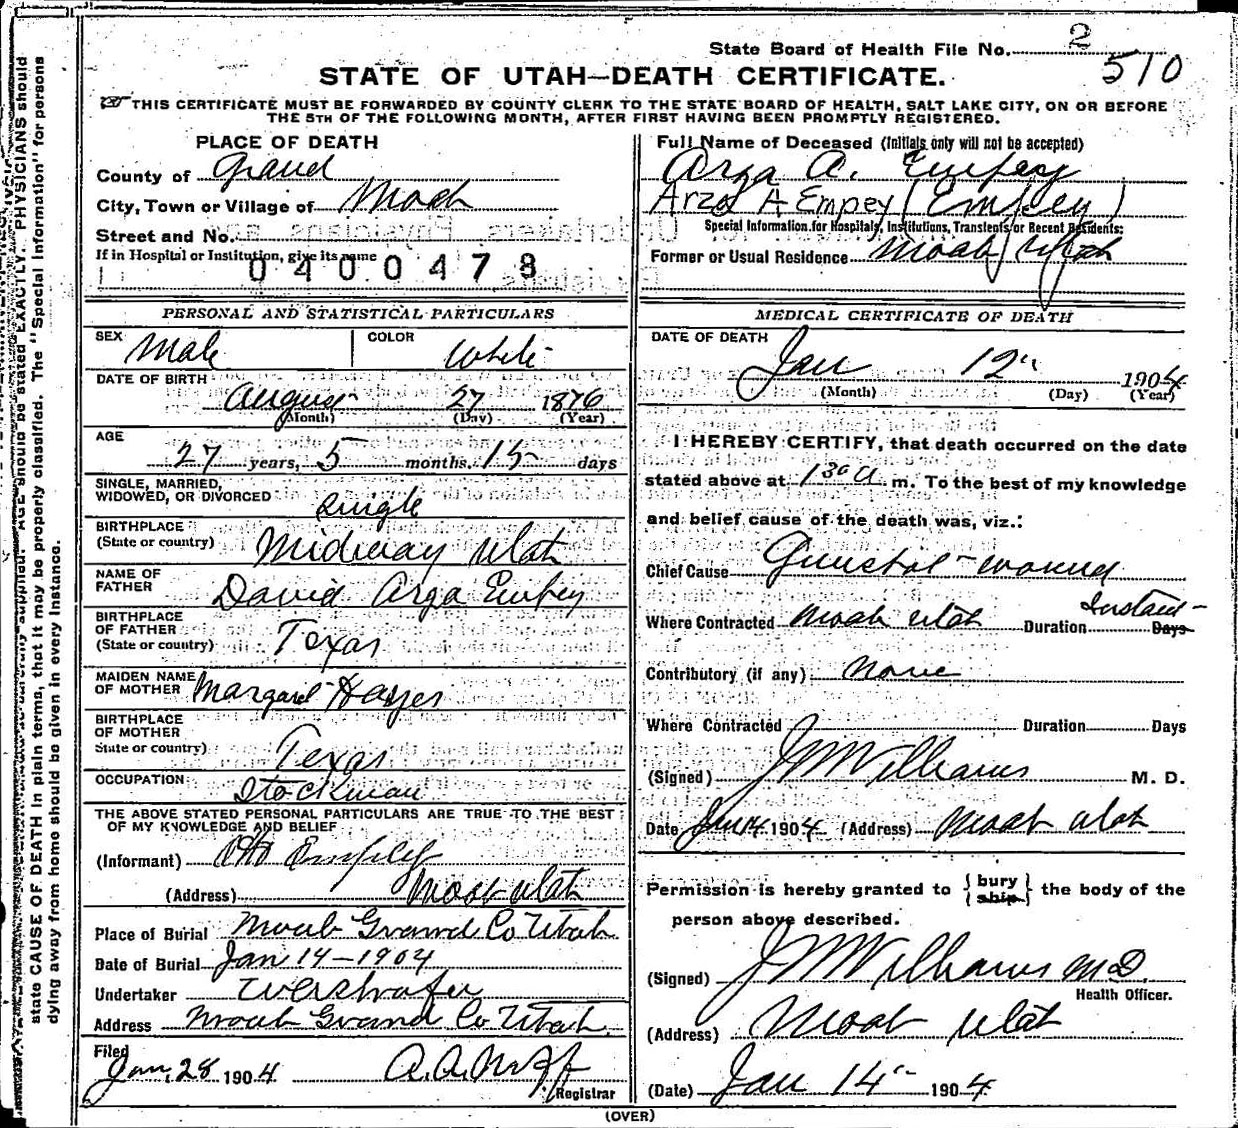 State Board of Health File No. 2
510
STATE OF UTAH—DEATH CERTIFICATE.
THIS CERTIFICATE MUST BE FORWARDED BY COUNTY CLERK TO THE STATE BOARD OF HEALTH, SALT LAKE CITY, ON OR BEFORE
THE 5TH OF THE FOLLOWING MONTH, AFTER FIRST HAVING BEEN PROMPTLY REGISTERED.
PLACE OF DEATH
County of Grand
City, Town or Village of Moab
Street and No.
If in Hospital or Institution, give its name
0400478
Full Name of Deceased (Initials only will not be accepted)
Arza A. Empey
Arza A Empey (Empey)
Special Information for Hospitals, Institutions, Transients or Recent Residents:
Former or Usual Residence Moab Utah
PERSONAL AND STATISTICAL PARTICULARS
SEX Male
COLOR White
DATE OF BIRTH
August 27 1876
(Month) (Day) (Year)
AGE
27 years, 5 months, 15 days
SINGLE, MARRIED,
WIDOWED, OR DIVORCED Single
BIRTHPLACE
(State or country) Midway Utah
NAME OF
FATHER David Arza Empey
BIRTHPLACE
OF FATHER
(State or country) Texas
MAIDEN NAME
OF MOTHER Margaret Hayes
BIRTHPLACE
OF MOTHER
State or country) Texas
OCCUPATION Stockman
THE ABOVE STATED PERSONAL PARTICULARS ARE TRUE TO THE BEST
OF MY KNOWLEDGE AND BELIEF
(Informant) Empey
(Address) Moab Utah
Place of Burial Moab Grand Co Utah
Date of Burial Jan 14-1904
Undertaker
Address Moab Grand Co Utah.
Filed
Jan, 28 1904 A.A.
Registrar
MEDICAL CERTIFICATE OF DEATH
DATE OF DEATH
Jan 12" 1904
(Month) (Day) (Year)
I HEREBY CERTIFY, that death occurred on the date
stated above at 1 30 a m. To the best of my knowledge
and belief cause of the death was, viz.:
Chief Cause Gunshot-wound
Where Contracted Moab Utah Duration Instant- Days
Contributory (if any) None
Where Contracted Duration Days
(Signed) J M Williams M. D.
Date Jan 14 1904 (Address) Moab Utah
Permission is hereby granted to {bury ship} the body of the
person above described.
(Signed) J M Williams M D.
Health Officer.
(Address) Moab Utah
(Date) Jan 14" 1904
(OVER)
state CAUSE OF DEATH in plain terms, that it may be properly classified. The "Special Information" for persons
dying away from home should be given in every instance.